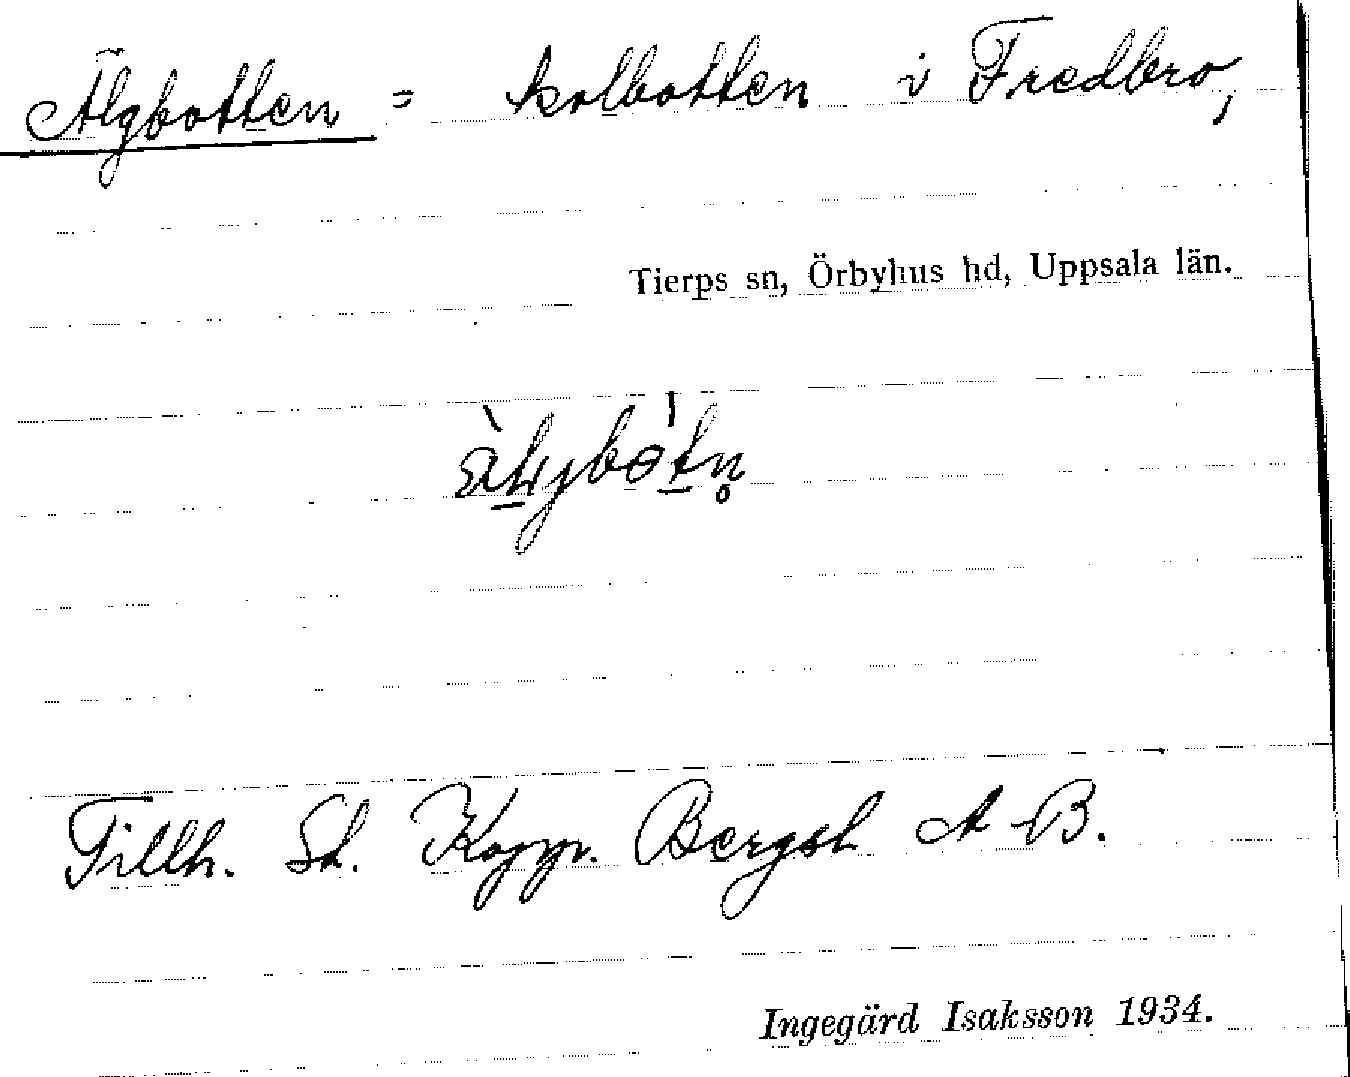 Älgbotten = kolbotten i Fredbro,
Tierps sn, Örbyhus hd, Uppsala län.
Tillh. St. Kopp. Bergsl A B.
Ingegärd Isaksson 1934.